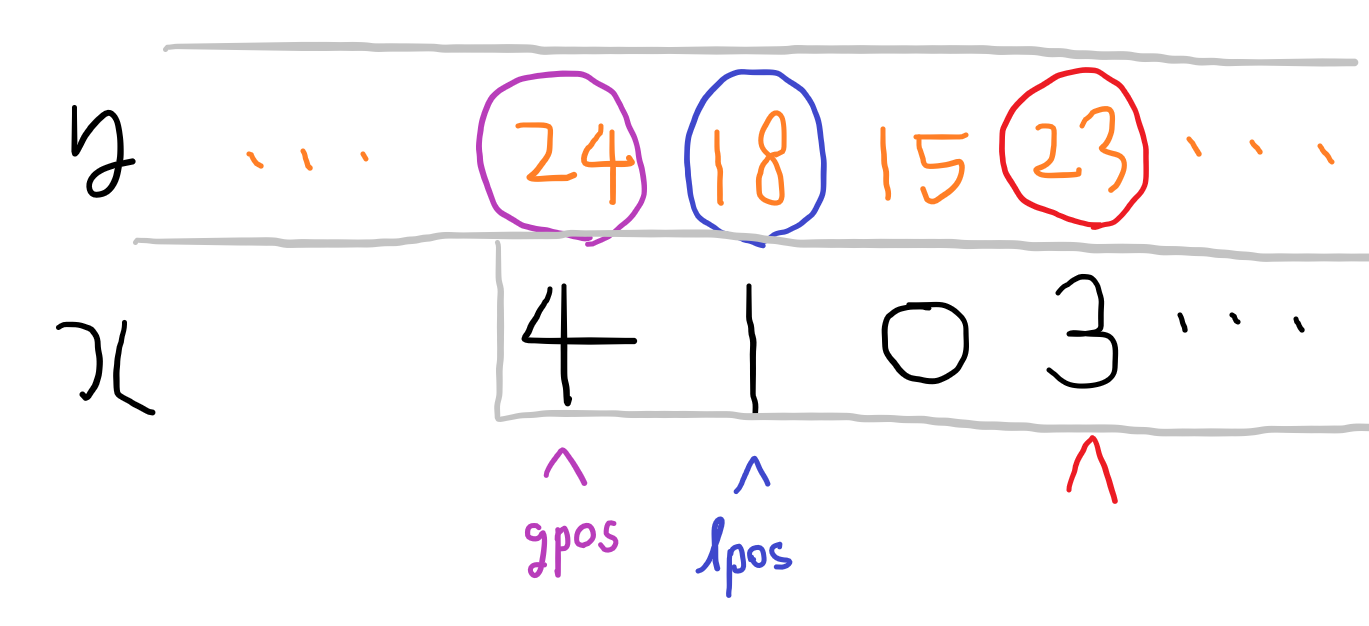 y ... 24 18 15 23 ...
x 4 1 0 3 ...
^ ^ ^
gpos lpos